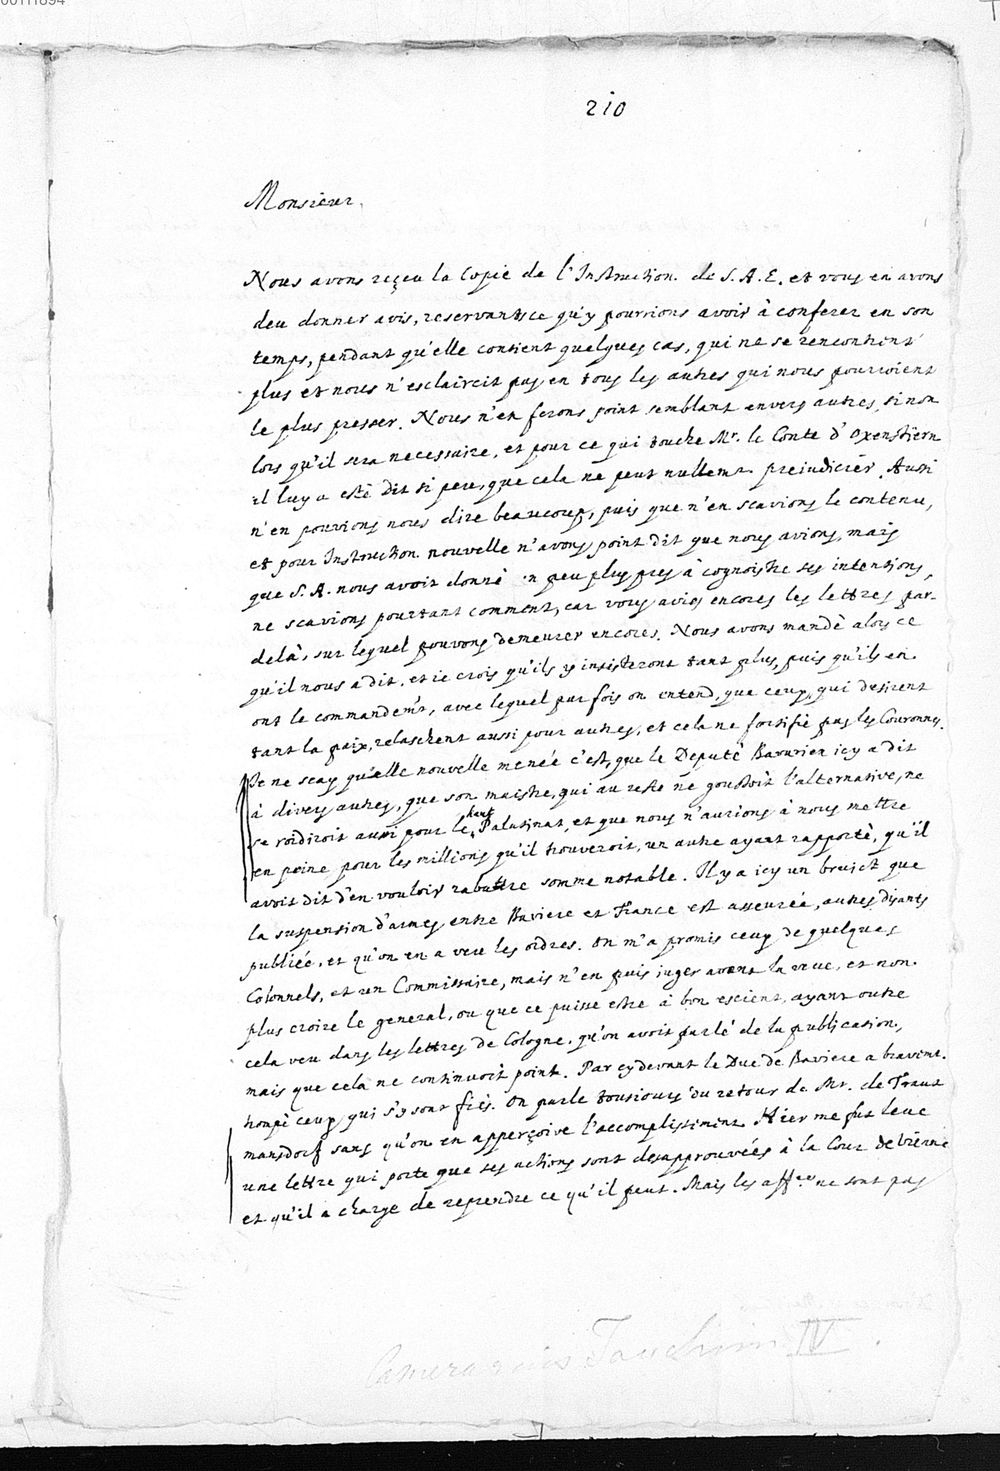 00111894
210
Monsieur,
Nous avons reçeu la Copie de l'Instruction de S. A. E. et vous en avons
deu donner avis, reservants ce qu'y pourrions avoir à conferer en son
temps, pendant qu'elle contient quelques cas, qui ne se rencontrent
plus et nous n'esclaircit pas en tous les autres qui nous pourroient
le plus presser. Nous n'en ferons point semblant envers autres, sinon
lors qu'il sera necessaire, et pour ce qui touche Mr. le Conte d'Oxenstiern
il luy a esté dit si peu, que cela ne peut nullemt. prejudicier. Aussi
n'en pouvions nous dire beaucoup, puis que n'en scavions le contenu,
et pour Instruction nouvelle n'avons point dit que nous avions, mais
que S. A. nous avoit donné un peu plus pres à cognoistre ses intentions,
ne scavions pourtant comment, car vous avies encores les lettres par-
delà, sur lequel pouvons demeurer encores. Nous avons mandè alors ce
qu'il nous a dit, et ie crois qu'ils y insisteront tant plus, puis qu'ils en
ont le commandemt, avec lequel par fois on entend, que ceux, qui desirent
tant la paix, relaschent aussi pour autres, et cela ne fortifie pas les Couronnes.
Je ne scay qu'elle nouvelle menée c'est, que le Deputé Bavarien icy a dit
à divers autres, que son maistre, qui au reste ne goustoit l'alternative, ne
se roidiroit aussi pour le haut Palatinat, et que nous n'aurions à nous mettre
en peine pour les millions qu'il trouveroit, un autre ayant rapporté, qu'il
avoit dit d'en vouloir rabattre somme notable. Il y a icy un bruict que
la suspension d'armes entre Baviere et France est asseurée, autres disants
publiée, et qu'on en a veu les ordres. On m'a promis ceux de quelques
Colonnels, et un Commissaire, mais n'en puis iuger avant la veue, et non
plus croire le general, ou que ce puisse estre à bon escient, ayant outre
cela veu dans les lettres de Cologne, qu'on avoit parlé de la publication,
mais que cela ne continuoit point. Par cy devant le Duc de Baviere a bravemt.
trompè ceux qui s'y sont fiés. On parle tousiours du retour de Mr. de Traut
mansdorf sans qu'on en apperçoive l'accomplissement. Hier me fut leue
une lettre qui porte que ses actions sont desapprouvées à la Cour de Vienne
et qu'il a charge de reprendre ce qu'il peut. Mais les affres ne sont pas
Camerarius IV